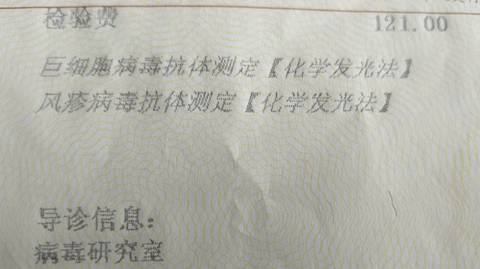 检验费 121.00
巨细胞病毒抗体测定【化学发光法】
风疹病毒抗体测定【化学发光法】
导诊信息：
病毒研究室